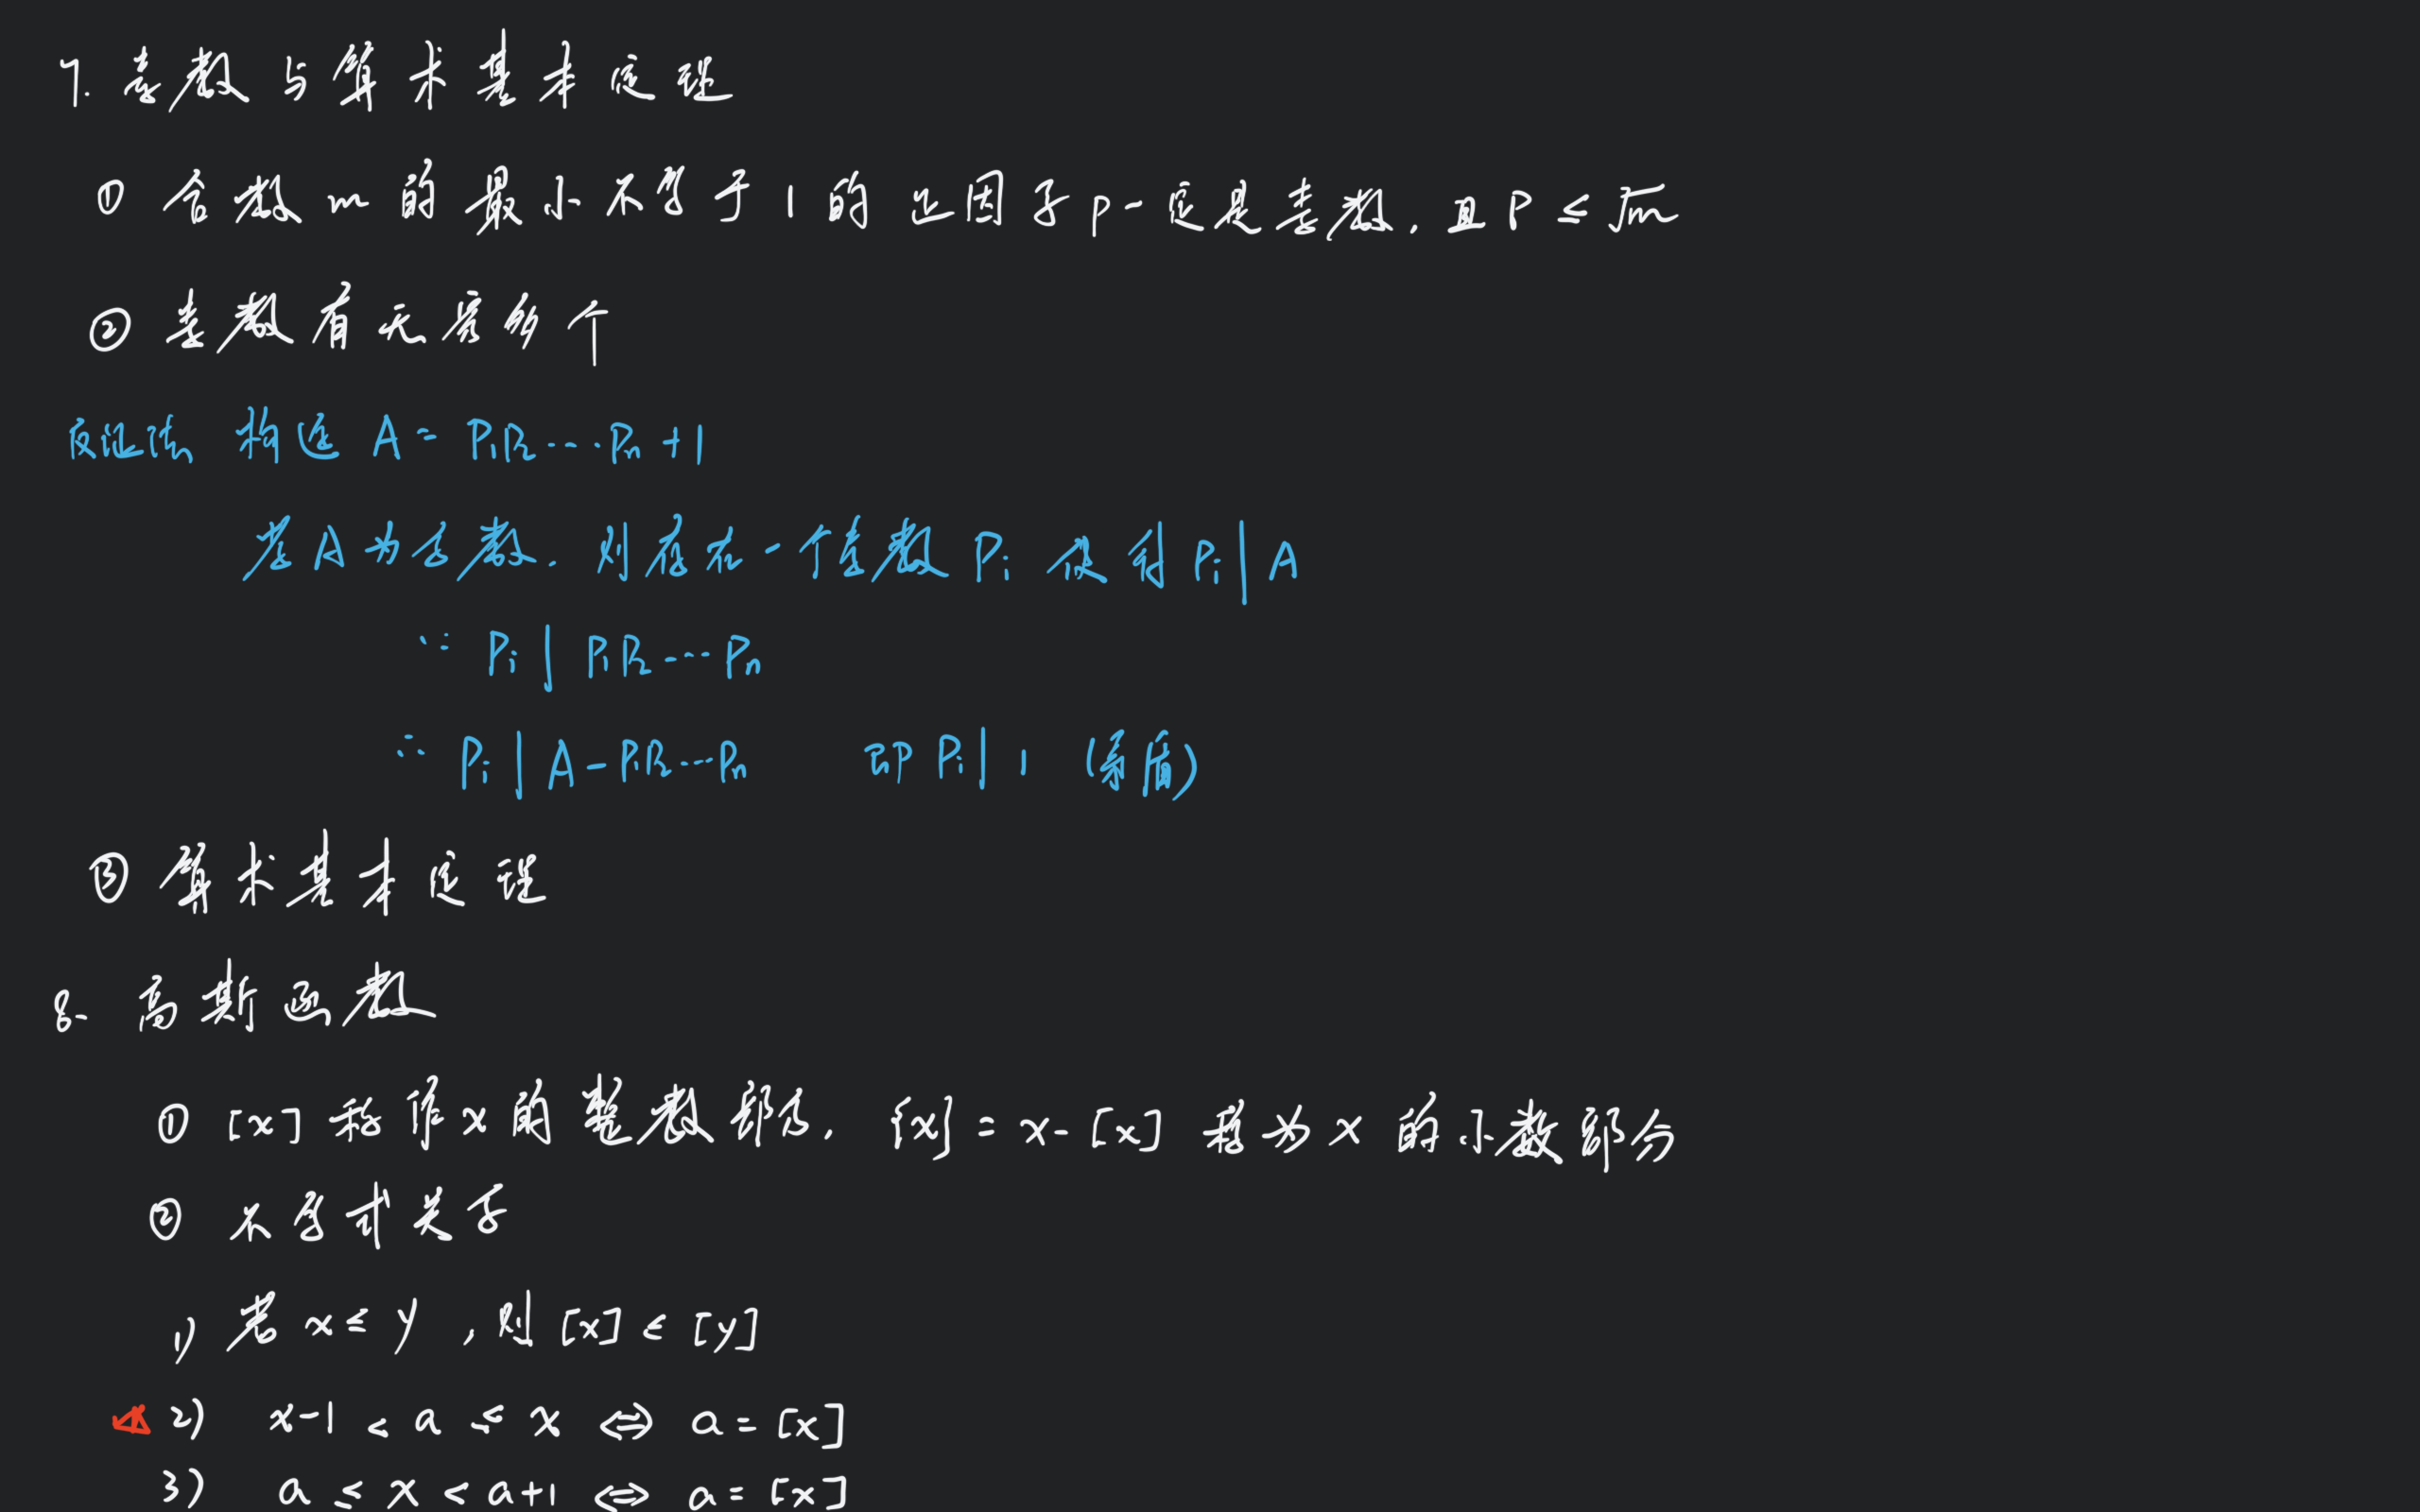 7. 素数与算术基本定理
① 合数m的最小不等于1的正因子p一定是素数, 且P≤√m
② 素数有无穷多个
反证法 构造 A = P₁P₂…Pₙ+1
若A为合数. 则存在一个素数 Pᵢ 使得 Pᵢ|A
∵ Pᵢ | P₁P₂…Pₙ
∴ Pᵢ | A-P₁P₂…Pₙ 即 Pᵢ|1 (矛盾)
③ 算术基本定理
8. 高斯函数
① [x]称作x的整数部分, {x}=x-[x] 称为x的小数部分
② 不等式关系
1) 若x≤y, 则[x]≤[y]
2) x-1<a≤x ⇔ a=[x]
3) a≤x<a+1 ⇔ a=[x]